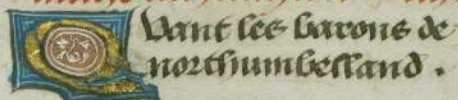 Quant les barons de
northumbelland .